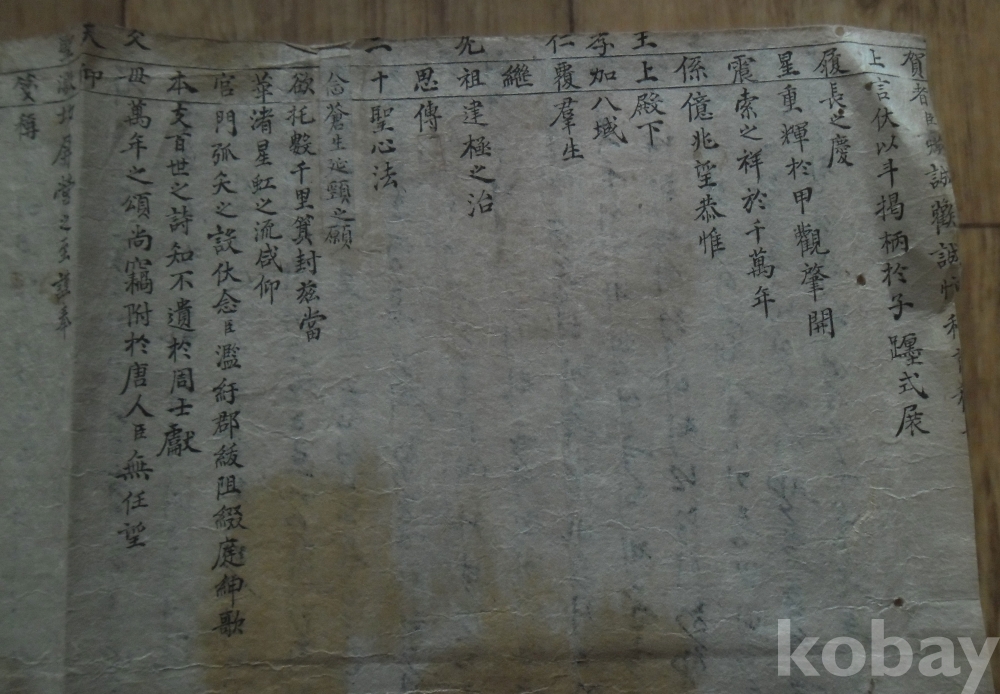 賀者臣
誠懽誠忭
上言伏以斗揭柄於子躔式展
履長之慶
星重輝於甲觀肇開
震索之祥於千萬年
係億兆望恭惟
王上殿下
孝加八域
仁覆羣生
繼
先祖建極之治
思傳
二十聖心法
蒼生延頸之願
欲托數千里箕封玆當
華渚星虹之流咸仰
官門弧矢之設伏念臣濫紆郡紱阻綴庭紳歌
本支百世之詩知不遺於周士獻
父母萬年之頌尚竊附於唐人臣無任望
天仰
聖
屏營之至謹奉
稱
kobay